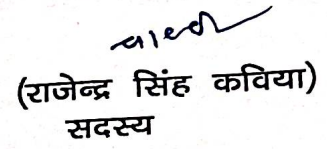 (राजेन्द्र सिंह कविया)
सदस्य